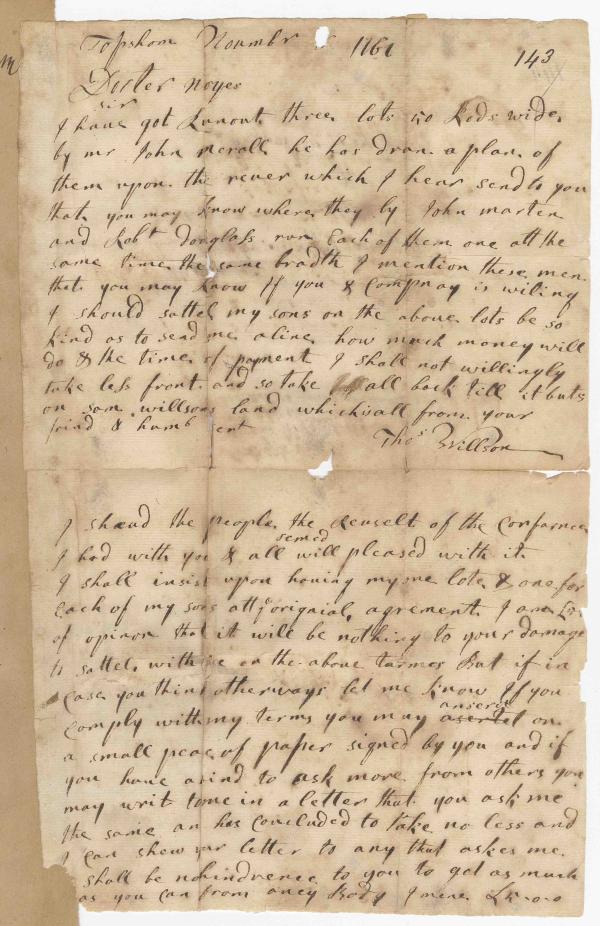 Topshom Noumbr 1761 143
Docter Noyes
sir
I haue got Runout three lots 50 Rods wide
by mr John merall he has dran a plan of
them upon the reuer which I hear send to you
that you may know where they by John marten
and Robt Douglass run Each of them one att the
same time the same bradth I mention these men
that you may know If you & Compnay is willing
I should sattel my sons on the aboue lots be so
kind as to send me aline how much money will
do & the time of payment I shall not willingly
take less front and so take all back till it buts
on sam willsons land which is all from your
frind & humb ent
Thos Willson
I shewd the people the Reuselt of the Confarnce
I had with you & all semed will pleased with it
I shall insist upon hauing my me lote & one for
Each of my sons att origaial agrement I am
of opinon that it will be nothing to your damage
to sattel with me on the aboue tarmes But if in
Case you think otherways let me know If you
Comply with my terms you may anser it on
a small peac of paper signed by you and if
you haue amind to ask more from others you
may writ to me in a letter that you ask me
the same an has Concluded to take no less and
I can shew your letter to any that askes me
shall be no hindrence to you to get as much
as you can from aney Body I mene